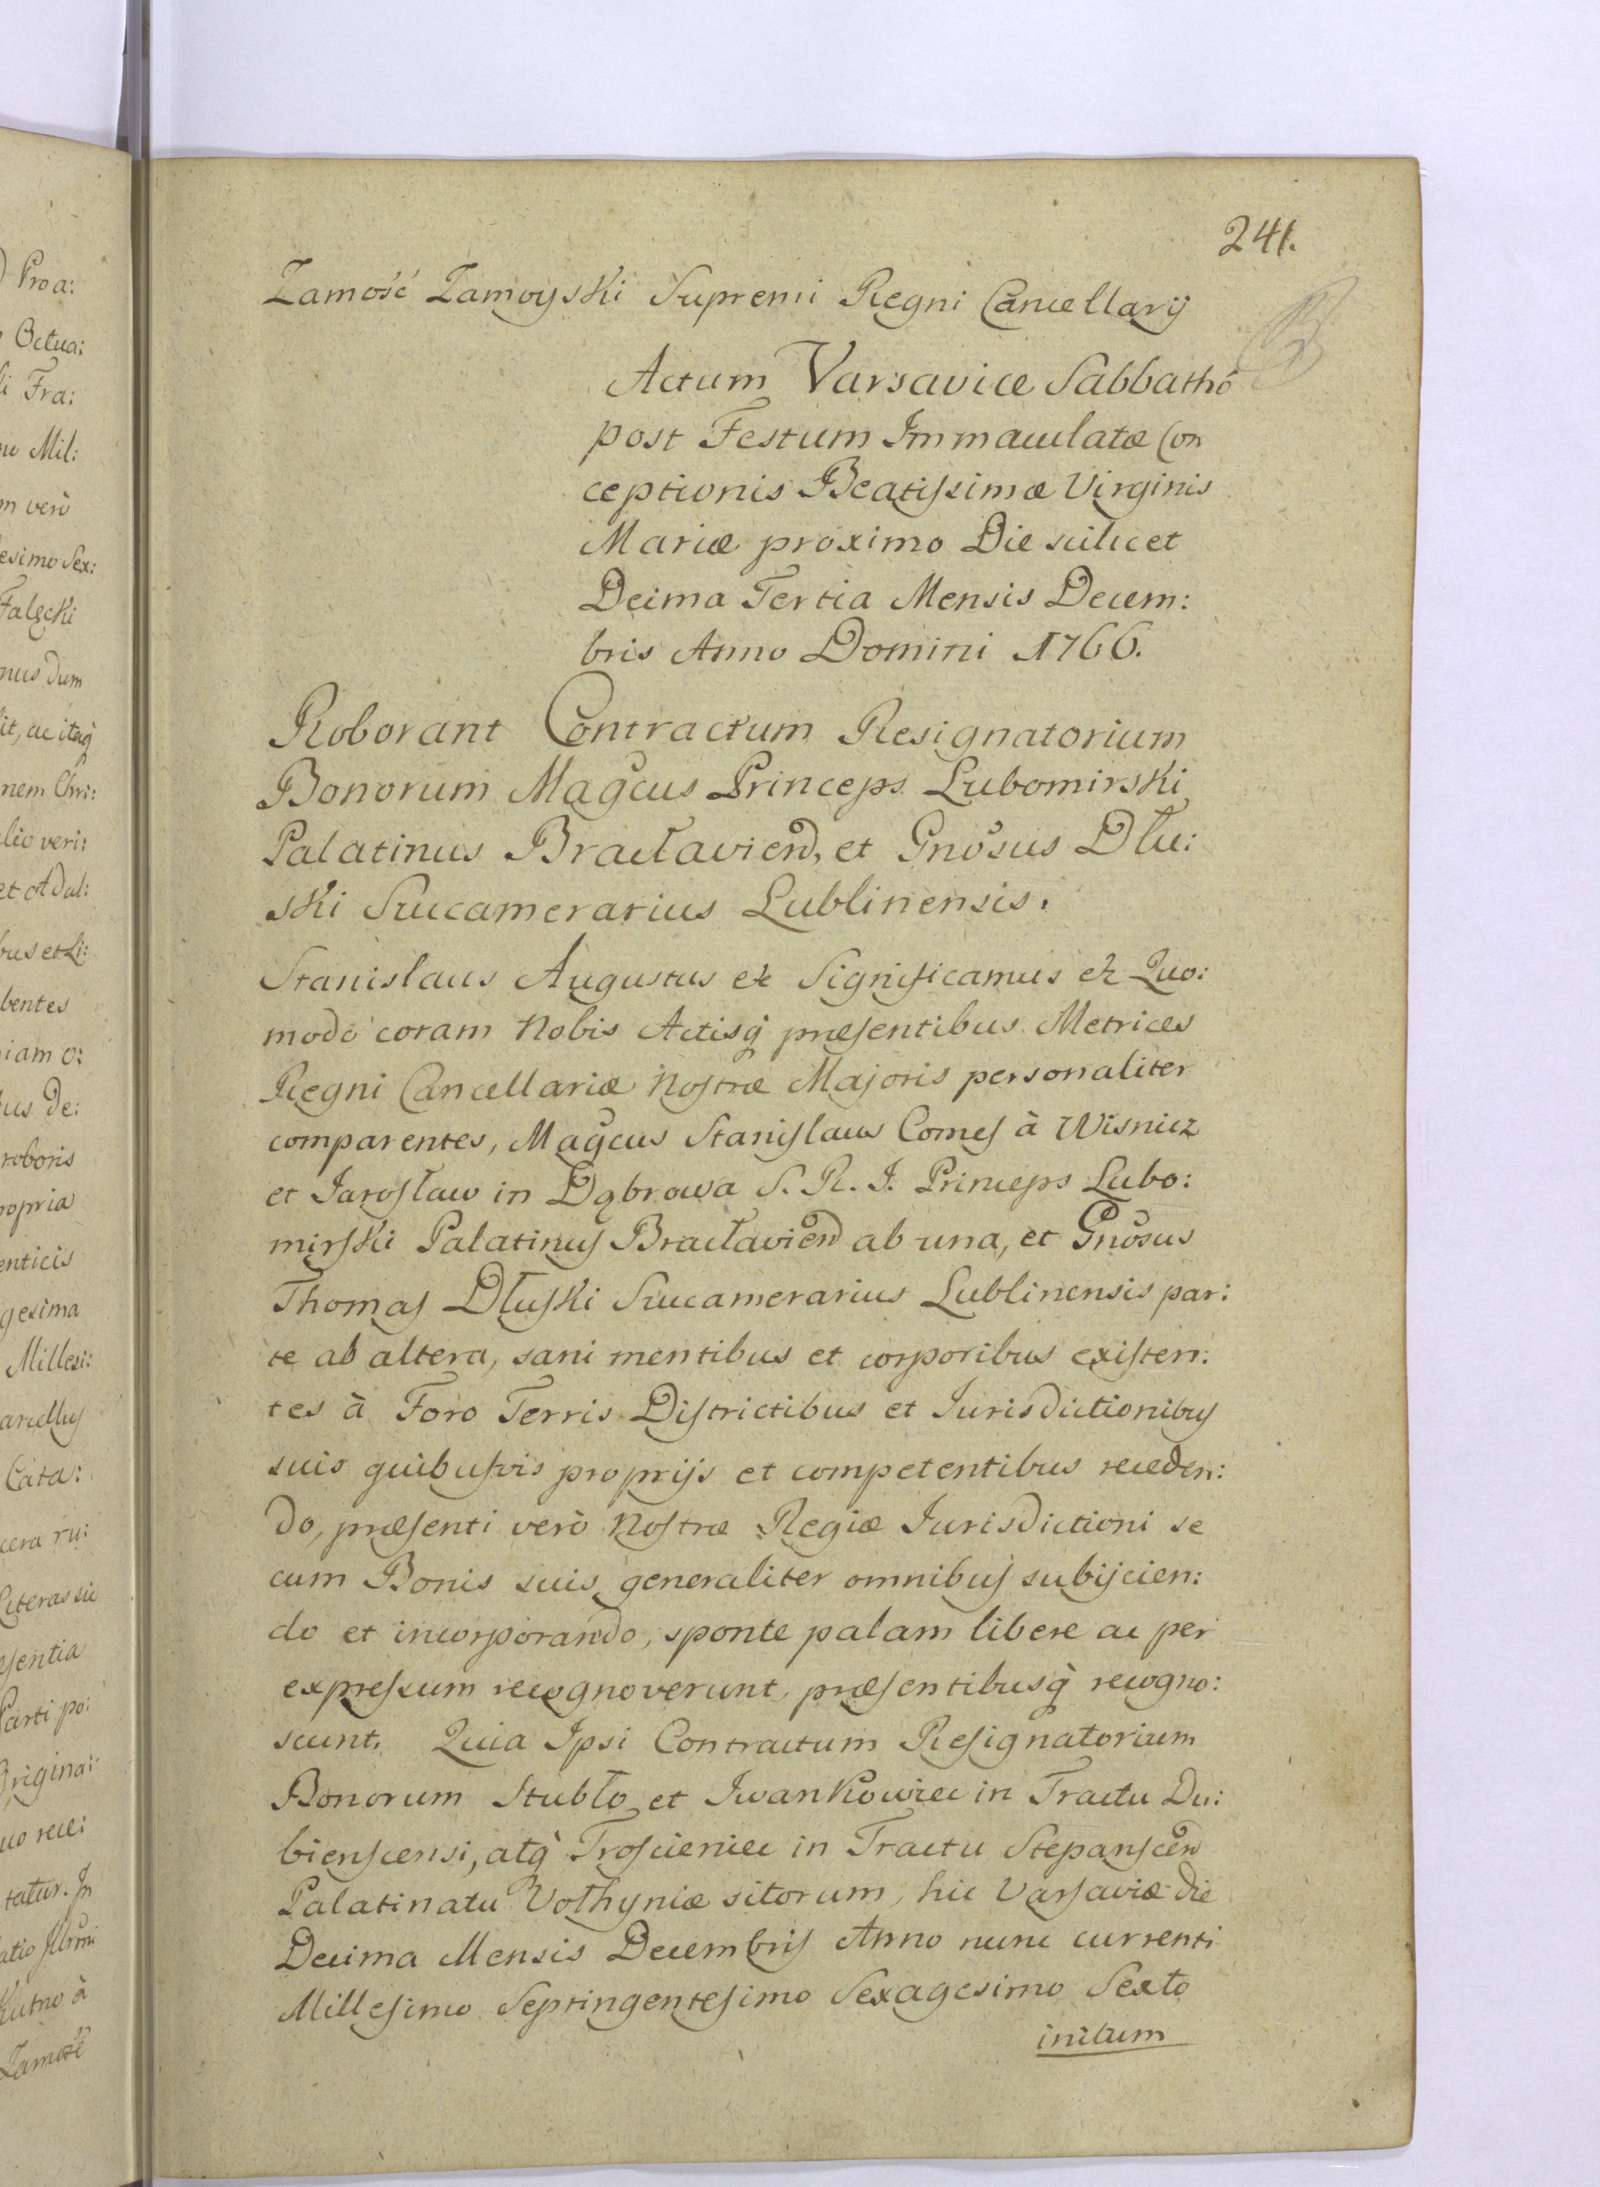 241.
Zamość Zamoyski Supremi Regni Cancellarij
Actum Varsaviæ Sabbathô
post Festum Immaculatæ Con
ceptionis Beatiſsimæ Virginis
Mariæ proximo Die scilicet
Decima Tertia Mensis Decem:
bris Anno Domini 1766.
Roborant Contractum Resignatorium
Bonorum Magcus Princeps Lubomirski
Palatinus Bracłavien, et Gnosus Dłu:
ski Succamerarius Lublinensis.
Stanislaus Augustus etc Significamus etc Quo:
modo coram Nobis Actisq præſentibus Metrices
Regni Cancellariæ Noſtræ Majoris personaliter
comparentes, Magcus Staniſlaus Comeſ à Wisnicz
et Jaroſław in Dąbrowa S. R. I. Princeps Lubo:
mirſki Palatinuſ Bracłavien ab una, et Gnosus
Thomaſ Dłuſki Succamerarius Lublinensis par:
te ab altera, sani mentibus et corporibus exiſten:
tes à Foro Terris Diſtrictibus et Iurisdictionibuſ
suis quibuſvis proprijs et competentibus receden:
do, præſenti verò Noſtræ Regiæ Iurisdictioni se
cum Bonis suis generaliter omnibuſ subijcien:
do et incorporando, sponte palam libere ac per
expreſsum recognoverunt, præſentibusq recogno:
scunt. Quia Ipsi Contractum Reſignatorium
Bonorum Stubło et Iwankowiec in Tractu Du:
bienſcensi, atq Troſcieniec in Tractu Stepanſcen
Palatinatu Vołhyniæ sitorum, hic Varſaviæ die
Decima Mensis Decembriſ Anno nunc currenti
Milleſimo Septingenteſimo Sexagesimo Sexto
initum